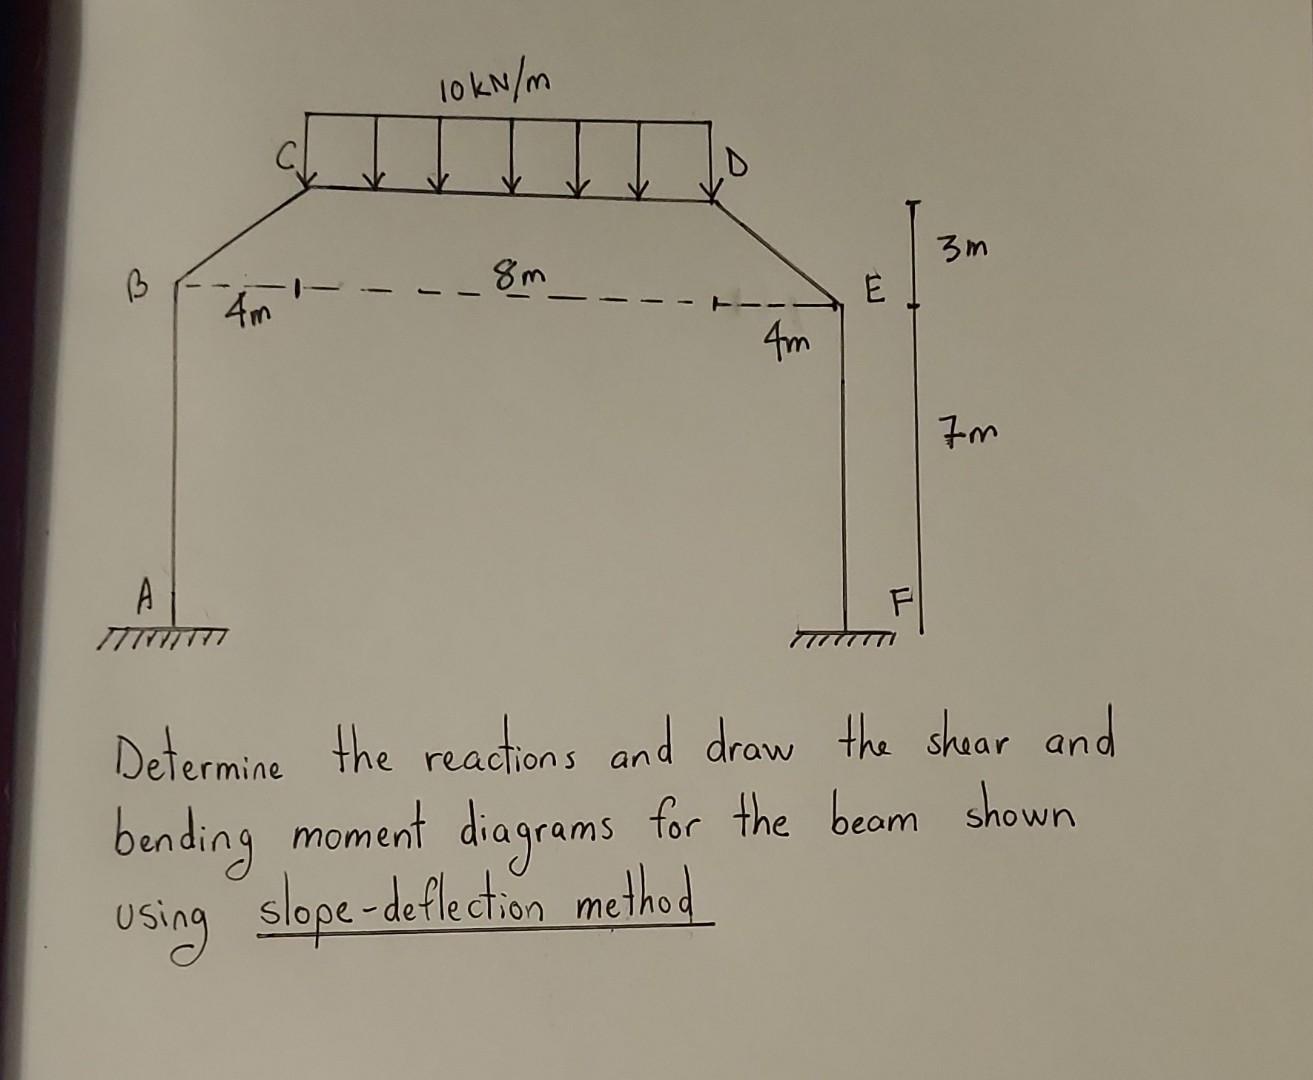 10kN/m
C
D
3m
B
8m
E
4m
4m
7m
A
F
Determine the reactions and draw the shear and
bending moment diagrams for the beam shown
using slope-deflection method